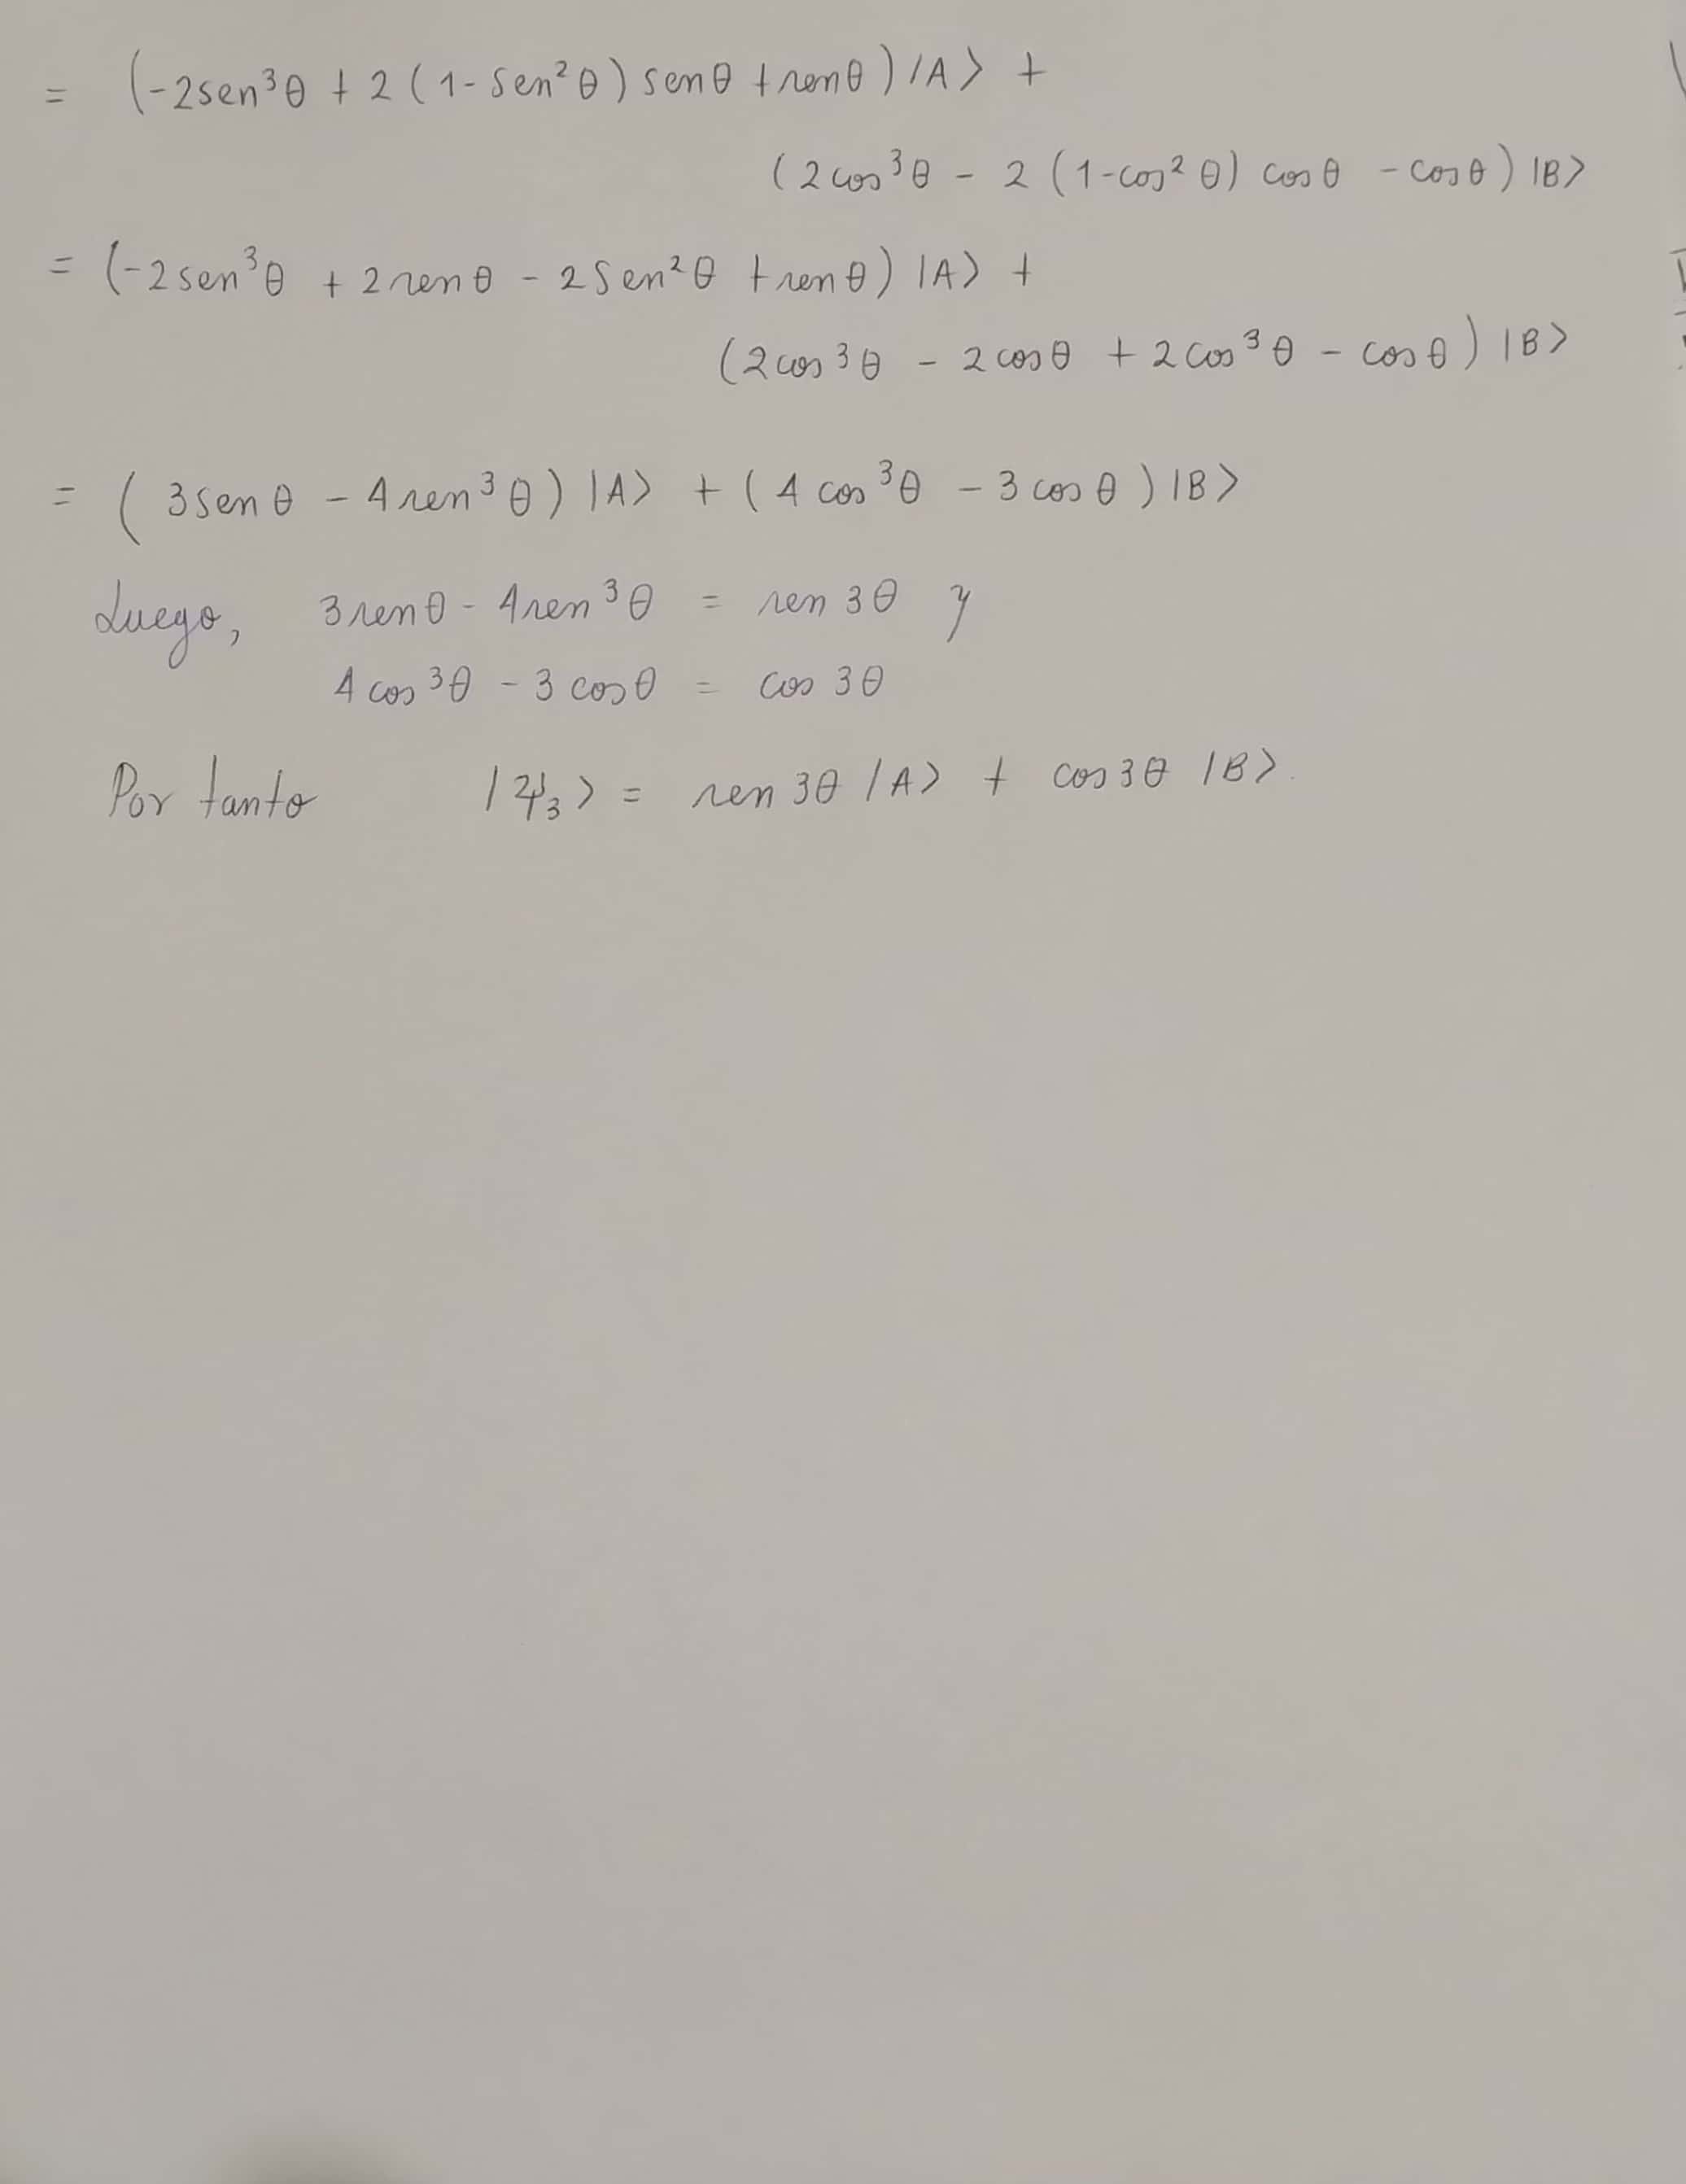 = (-2sen³θ + 2(1-sen²θ) senθ + senθ) |A⟩ +
(2cos³θ - 2(1-cos²θ) cosθ - cosθ) |B⟩
= (-2sen³θ + 2senθ - 2sen²θ + senθ) |A⟩ +
(2cos³θ - 2cosθ + 2cos³θ - cosθ) |B⟩
= (3senθ - 4sen³θ) |A⟩ + (4cos³θ - 3cosθ) |B⟩
Luego, 3senθ - 4sen³θ = sen 3θ y
4cos³θ - 3cosθ = cos 3θ
Por tanto |ψ₃⟩ = sen 3θ |A⟩ + cos 3θ |B⟩.